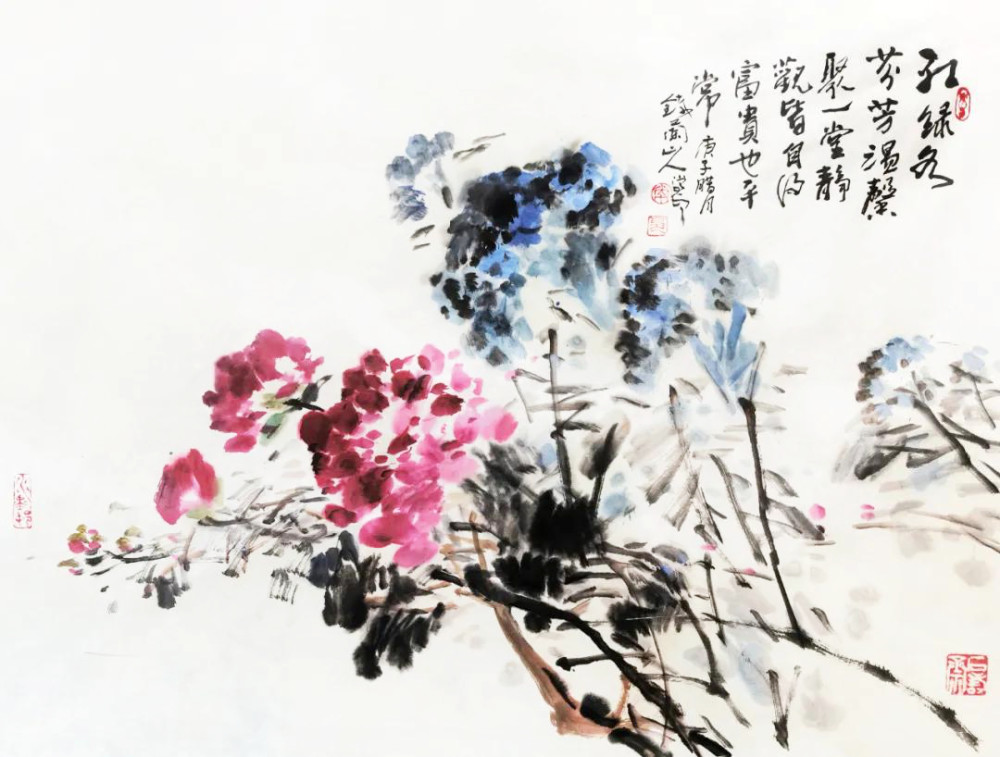 红绿各
芬芳温馨
聚一堂静
觀皆自得
富貴也平
常 庚子腊月
蘭山人